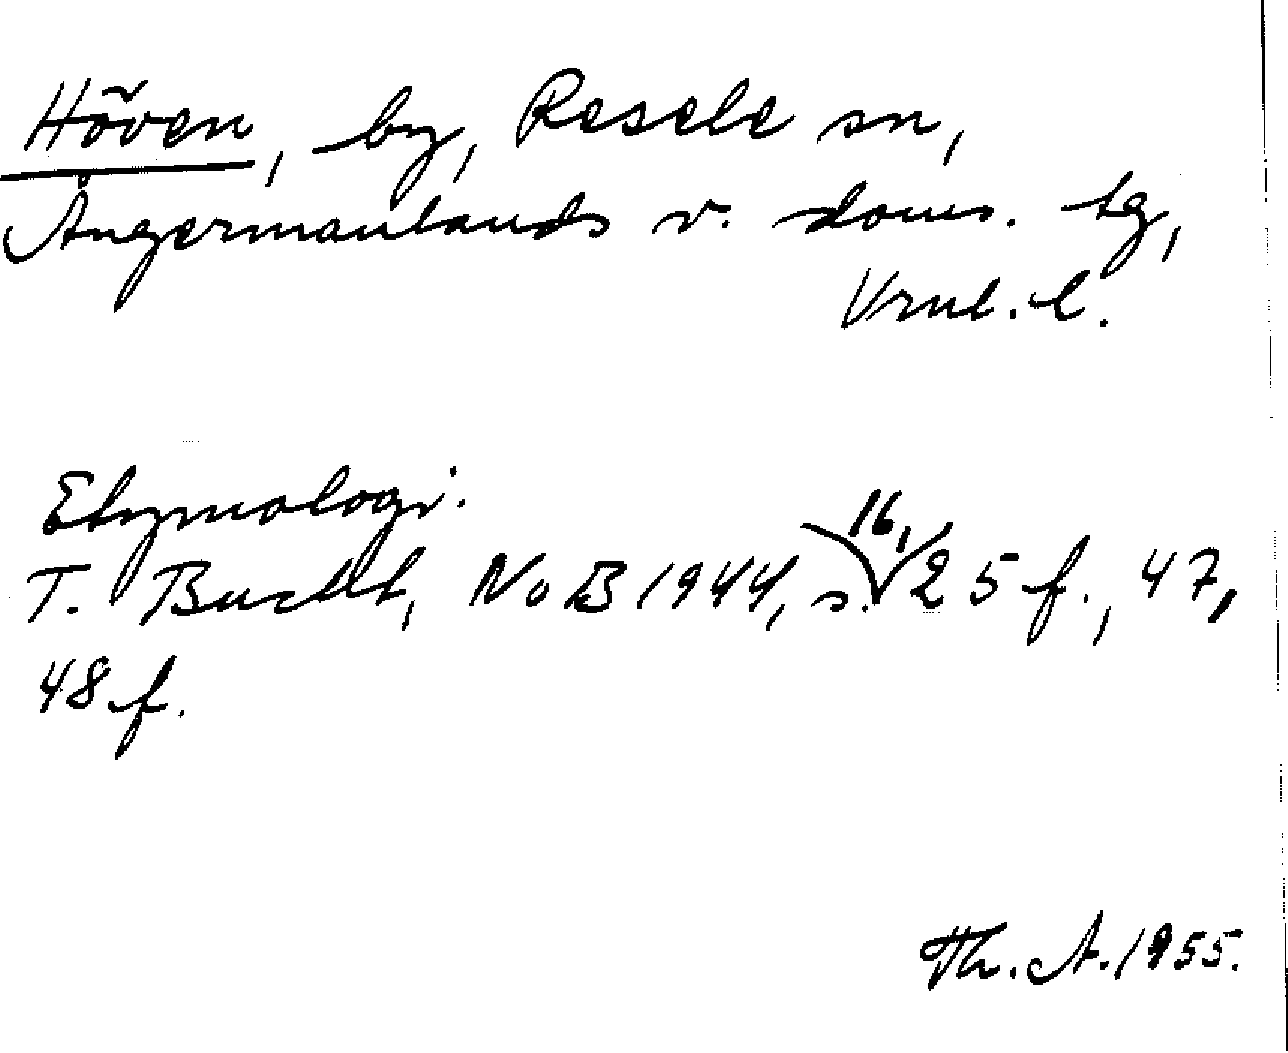 Höven, by, Resele sn,
Ångermanlands v. doms. tg,
Vrnl. l.
Etymologi.
T. Bucht, NoB 1944, s. 16, 25 f., 47,
48 f.
Th. A. 1955.